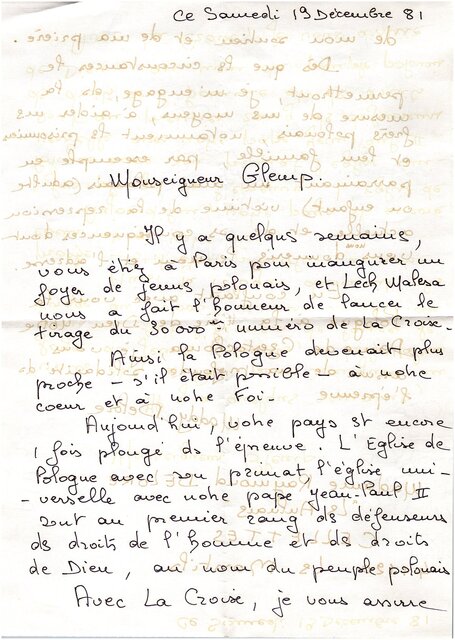 Ce Samedi 19 Décembre 81
Monseigneur Glemp.
Il y a quelqus semaines,
vous étiez à Paris pour inaugurer un
foyer de jeuns polonais, et Lech Walesa
nous a fait l'honneur de lancer le
tirage du 30000ème numéro de La Croix.
Ainsi la Pologne devenait plus
proche - s'il était possible - à notre
coeur et à notre Foi.
Aujourd'hui, votre pays st encore
1 fois plongé ds l'épreuve. L'Eglise de
Pologne avec son primat, l'église uni-
-verselle avec notre pape Jean-Paul II
sont au premier rang ds défenseurs
ds droits de l'homme et ds droits
de Dieu, au nom du peuple polonais
Avec La Croix, je vous assure